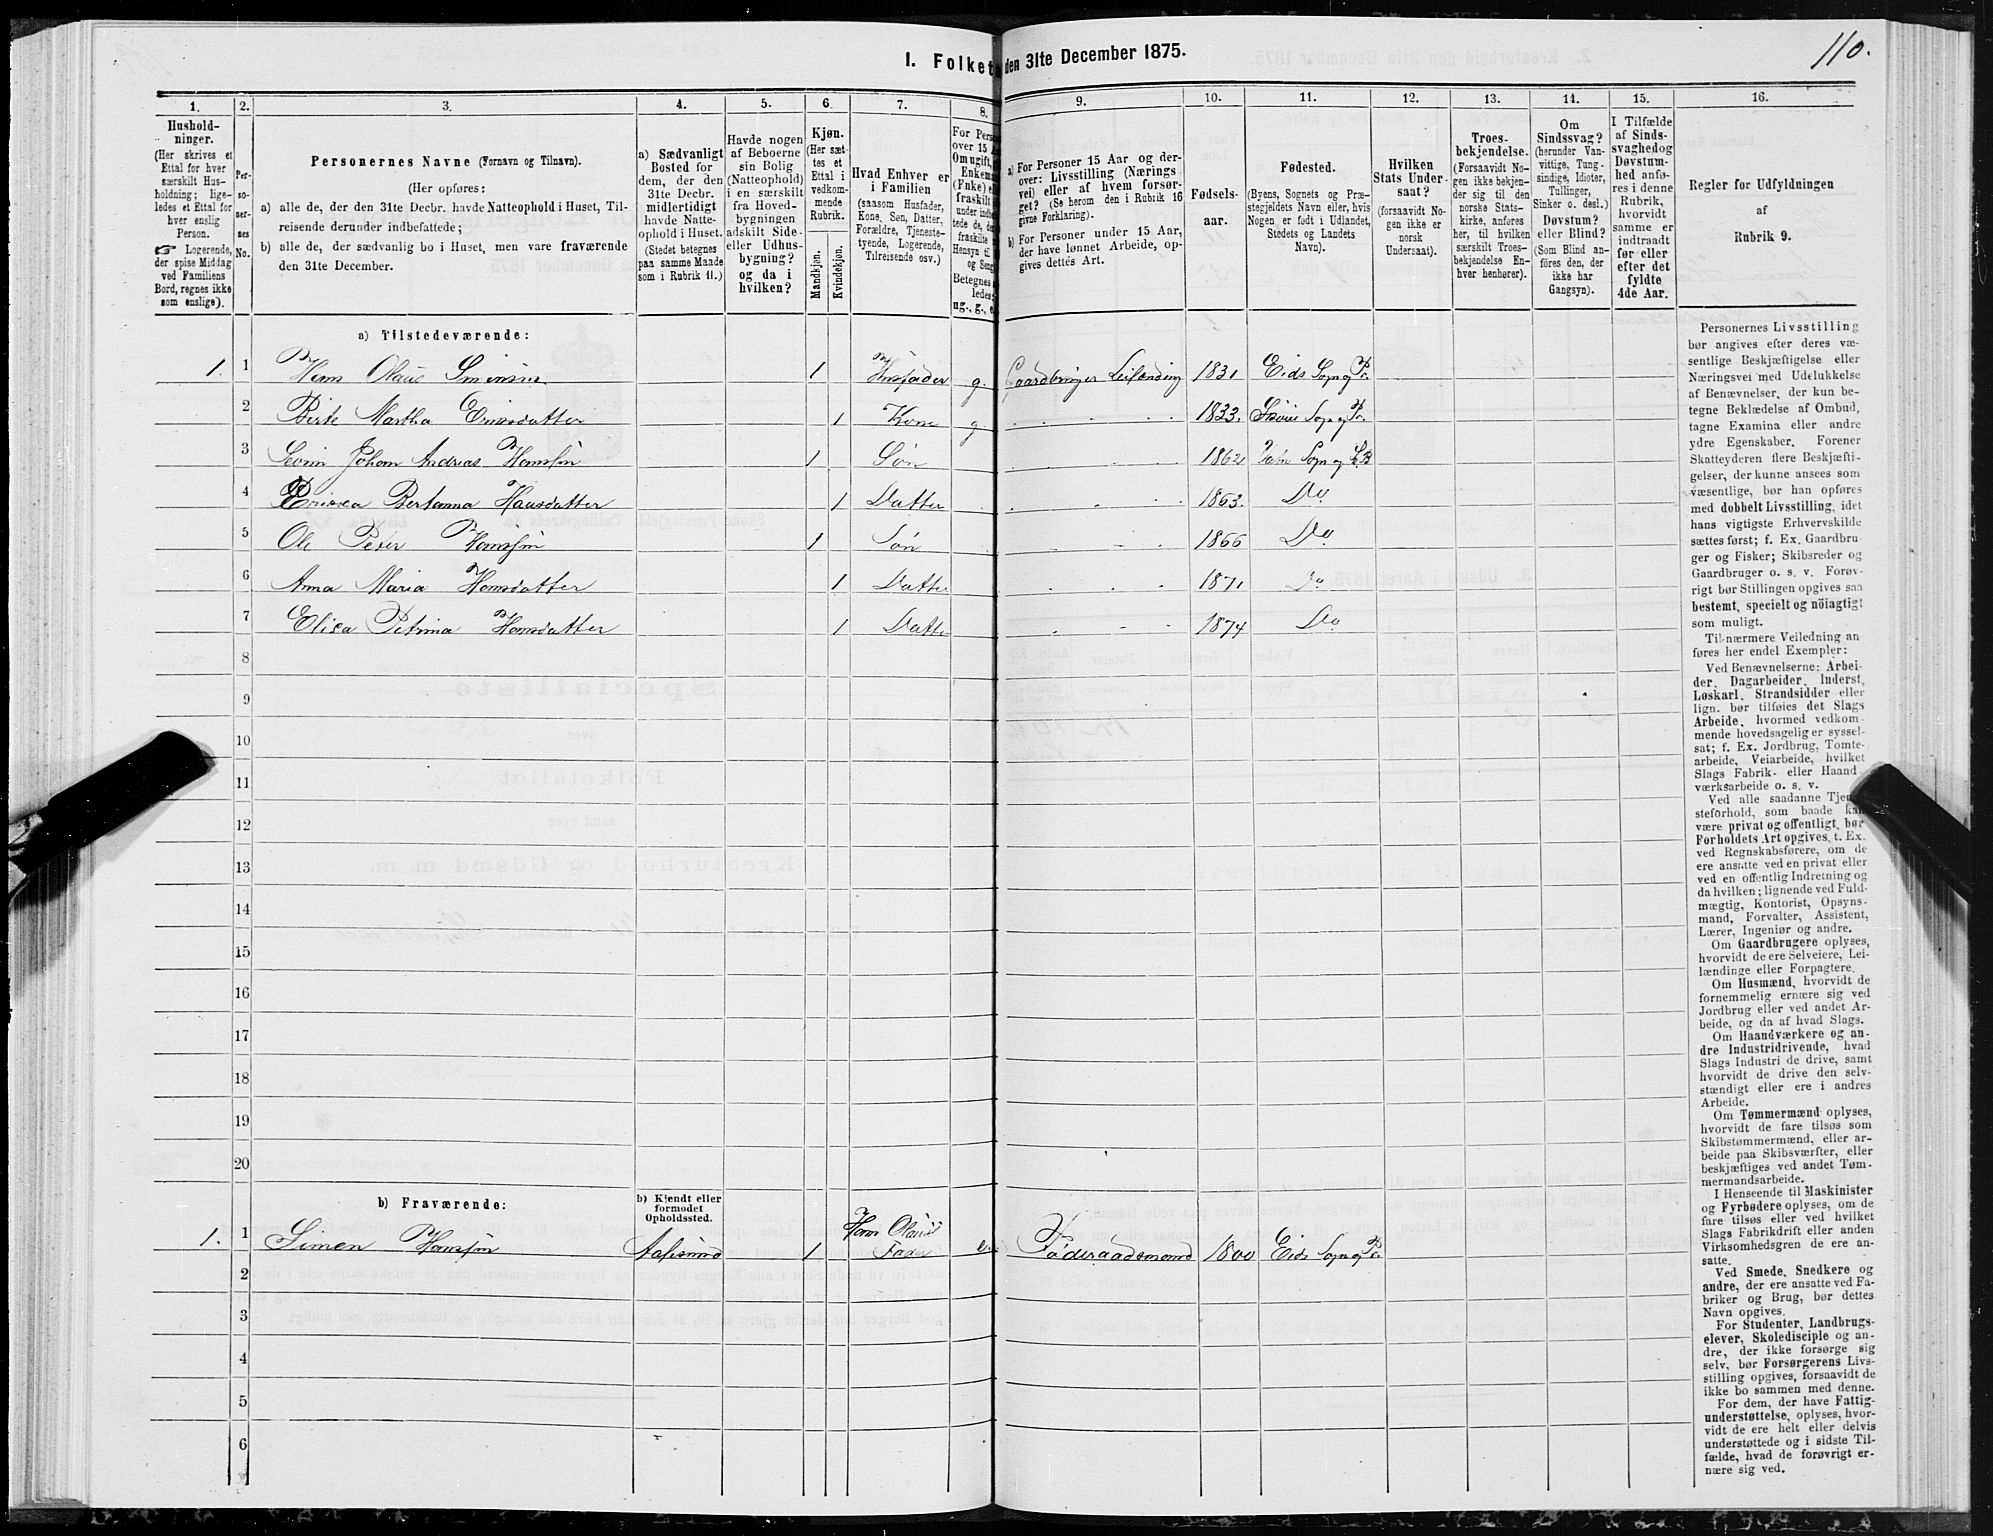 110.
I. Folket den 31te December 1875.
1. 2. 3. 4. 5. 6. 7. 8. 9. 10. 11. 12. 13. 14. 15. 16.
Hushold-
ninger.
(Her skrives et
Ettal for hver
særskilt Hus-
holdning; lige-
ledes et Ettal for
hver enslig
Person.
☞ Logerende,
der spise Middag
ved Familiens
Bord, regnes ikke
som enslige).
Per-
so-
ner-
nes
No.
Personernes Navne (Fornavn og Tilnavn).
(Her opføres:
a) alle de, der den 31te Decbr. havde Natteophold i Huset, Til-
reisende derunder indbefattede;
b) alle de, der sædvanlig bo i Huset, men vare fraværende
den 31te December.
a) Sædvanligt
Bosted for
dem, der den
31te Decbr.
midlertidigt
havde Natte-
ophold i Huset.
(Stedet betegnes
paa samme Maade
som i Rubrik 11.)
Havde nogen
af Beboerne
sin Bolig
(Natteophold)
i en særskilt
fra Hoved-
bygningen
adskilt Side-
eller Udhus-
bygning?
og da i
hvilken?
Kjøn.
(Her sæt-
tes et
Ettal i
vedkom-
mende
Rubrik.
Mandkjøn.
Kvindekjøn.
Hvad Enhver er
i Familien
(saasom Husfader,
Kone, Søn, Datter,
Forældre, Tjeneste-
tyende, Logerende,
Tilreisende osv.)
For Pers
over 15 A
Om ugift,
Enkema
(Fnke) e
fraskilt
under indb
tede de, de
fraskilte
Hensyn til
og Seng
Betegnes
ledes:
ug., g., e
a) For Personer 15 Aar og der-
over: Livsstilling (Nærings
vei) eller af hvem forsør-
get? (Se herom den i Rubrik 16
givne Forklaring).
b) For Personer under 15 Aar,
der have lønnet Arbeide, op-
gives dettes Art.
Fødsels-
aar.
Fødested.
(Byens, Sognets og Præ-
stegjeldets Navn eller, hvis
Nogen er født i Udlandet,
Stedets og Landets
Navn).
Hvilken
Stats Under-
saat?
(forsaavidt No-
gen ikke er
norsk
Undersaat).
Troes-
bekjendelse.
(Forsaavidt No-
gen ikke bekjen-
der sig til den
norske Stats-
kirke, anføres
her, til hvilken
særskilt Troes-
bekjendelse En-
hver henhører).
Om
Sindssvag?
(herunder Van-
vittige, Tung-
sindige, Idioter,
Tullinger,
Sinker o. desl.)
Døvstum?
eller Blind?
(Som Blind an-
føres den, der
ikke har
Gangsyn).
I Tilfælde
af Sinds-
svaghed og
Døvstum-
hed anfø-
res i denne
Rubrik,
hvorvidt
samme er
indtraadt
før eller
efter det
fyldte
4de Aar.
Regler for Udfyldningen
af
Rubrik 9.
a) Tilstedeværende:
1. 1 Hans Olaus Simensen 1 Husfader g. Gaardbruger Leilænding 1831 Eids Sogn og Pr.
2 Birte Martha 1 Kone g 1833. Sogn og Pr.
3 Johan Andreas Hanssøn 1 Søn 1862 Sogn og
4 Bertanna Hansdatter 1 Datter 1863. Do
5 Ole Peter Hanssøn 1 Søn 1866 Do
6 Anna Maria Hansdatter 1 Datter 1871 Do
7 Elisa Petrina Hansdatter 1 Datter 1874 Do
8
9
10
11
12
13
14
15
16
17
18
19
20
b) Fraværende:
b) Kjendt eller
formodet
Opholdssted.
1. 1 Simen Hanssøn Aalesund 1 Hans Olaus' Fader e. Føderaadsmand 1800 Eids Sogn og Pr.
2
3
4
5
6
Personernes Livsstilling
bør angives efter deres væ-
sentlige Beskjæftigelse eller
Næringsvei med Udelukkelse
af Benævnelser, der kun be-
tegne Beklædelse af Ombud,
tagne Examina eller andre
ydre Egenskaber. Forener
Skatteyderen flere Beskjæfti-
gelser, der kunne ansees som
væsentlige, bør han opføres
med dobbelt Livsstilling, idet
hans vigtigste Erhvervskilde
sættes først; f. Ex. Gaardbru-
ger og Fisker; Skibsreder og
Gaardbruger o. s. v. Forøv-
rigt bør Stillingen opgives saa
bestemt, specielt og nöiagtigt
som muligt.
Til nærmere Veiledning an
føres her endel Exempler:
Ved Benævnelserne: Arbei-
der, Dagarbeider, Inderst,
Løskarl, Strandsidder eller
lign. bør tilføies det Slags
Arbeide, hvormed vedkom-
mende hovedsagelig er syssel-
sat; f. Ex. Jordbrug, Tomte-
arbeide, Veiarbeide, hvilket
Slags Fabrik- eller Haand
værksarbeide o. s. v.
Ved alle saadanne Tjene-
steforhold, som baade kan
være privat og offentligt, bør
Forholdets Art opgives, t. Ex.
ved Regnskabsførere, om de
ere ansatte ved en privat eller
ved en offentlig Indretning og
da hvilken; lignende ved Fuld-
mægtig, Kontorist, Opsyns-
mand, Forvalter, Assistent,
Lærer, Ingeniør og andre.
Om Gaardbrugere oplyses,
hvorvidt de ere Selveiere, Lei-
lændinge eller Forpagtere.
Om Husmænd, hvorvidt de
fornemmelig ernære sig ved
Jordbrug eller ved andet Ar-
beide, og da af hvad Slags.
Om Haandværkere og an-
dre Industridrivende, hvad
Slags Industri de drive, samt
hvorvidt de drive den selv-
stændigt eller ere i andres
Arbeide.
Om Tømmermænd oplyses,
hvorvidt de fare tilsøs som
Skibstømmermænd, eller ar-
beide paa Skibsværfter, eller
beskjæftiges ved andet Tøm-
mermandsarbeide.
I Henseende til Maskinister
og Fyrbødere oplyses, om de
fare tilsøs eller ved hvilket
Slags Fabrikdrift eller anden
Virksomhedsgren de ere an-
satte.
Ved Smede, Snedkere og
andre, der ere ansatte ved Fa-
briker og Brug, bør dettes
Navn opgives.
For Studenter, Landbrugs-
elever, Skoledisciple og an-
dre, der ikke forsørge sig
selv, bør Forsørgerens Livs-
stilling opgives, forsaavidt de
ikke bo sammen med denne.
For dem, der have Fattig-
understøttelse, oplyses, hvor-
vidt de ere helt eller delvis
understøttede og i sidste Til-
fælde, hvad de forøvrigt er-
nære sig ved.